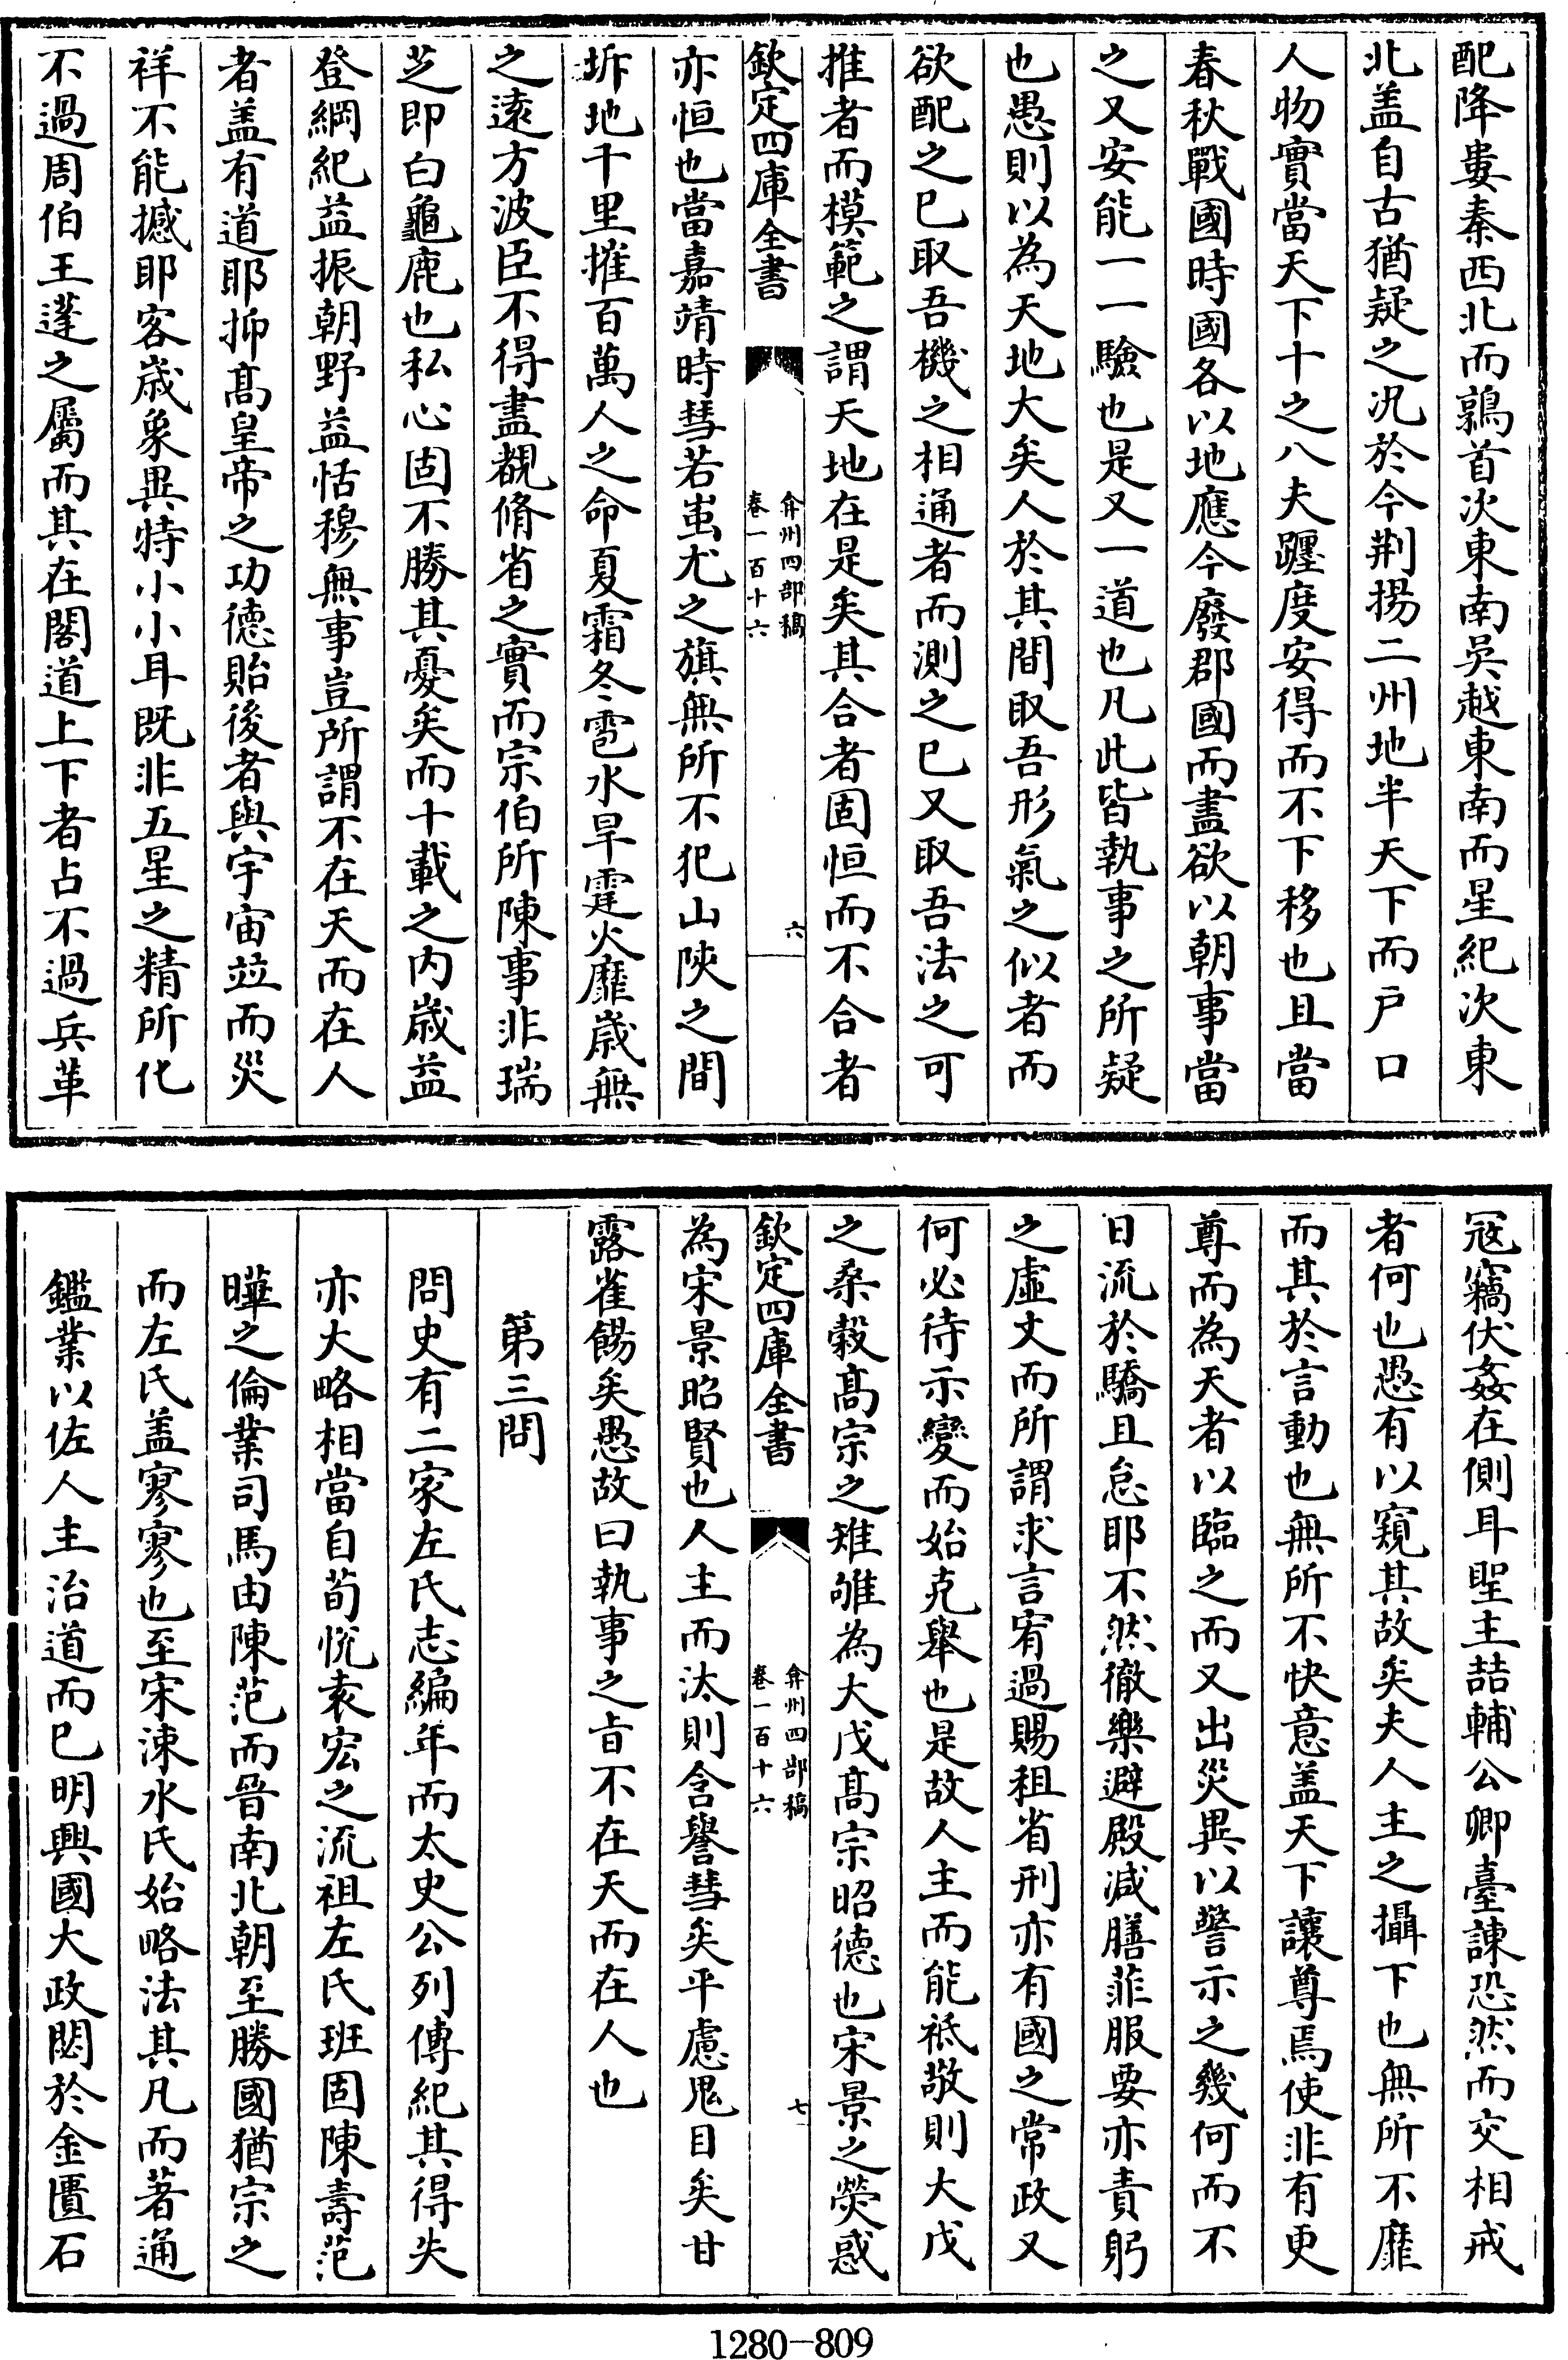 配降婁秦西北而鶉首次東南吳越東南而星紀次東
北盖自古猶疑之况於今荆揚二州地半天下而户口
人物實當天下十之八夫躔度安得而不下移也且當
春秋戰國時國各以地應今廢郡國而盡欲以朝事當
之又安能一一驗也是又一道也凡此皆執事之所疑
也愚則以為天地大矣人於其間取吾形氣之似者而
欲配之已取吾機之相通者而測之已又取吾法之可
推者而模範之謂天地在是矣其合者固恒而不合者
欽定四庫全書
弇州四部稿
卷一百十六
六
亦恒也當嘉靖時彗若蚩尤之旗無所不犯山陜之間
坼地千里摧百萬人之命夏霜冬雹水旱霆火靡歲無
之逺方波臣不得盡覩脩省之實而宗伯所陳事非瑞
芝即白龜鹿也私心固不勝其憂矣而十載之内歲益
登綱紀益振朝野益恬穆無事豈所謂不在天而在人
者盖有道耶抑髙皇帝之功德貽後者與宇宙並而災
祥不能撼耶客歲象異特小小耳既非五星之精所化
不過周伯王蓬之屬而其在閣道上下者占不過兵革
冦竊伏姦在側耳聖主喆輔公卿臺諫恐然而交相戒
者何也愚有以窺其故矣夫人主之攝下也無所不靡
而其於言動也無所不快意盖天下讓尊焉使非有更
尊而為天者以臨之而又出災異以警示之幾何而不
日流於驕且怠耶不然徹樂避殿减膳菲服要亦責躬
之虚文而所謂求言宥過賜租省刑亦有國之常政又
何必待示變而始克舉也是故人主而能祗敬則大戊
之桑榖髙宗之雉雊為大戊髙宗昭德也宋景之熒惑
欽定四庫全書
弇州四部稿
卷一百十六
七
為宋景昭賢也人主而汰則含譽彗矣平慮鬼目矣甘
露雀餳矣愚故曰執事之㫖不在天而在人也
第三問
問史有二家左氏志編年而太史公列傳紀其得失
亦大略相當自荀悦袁宏之流祖左氏班固陳壽范
曄之倫業司馬由陳范而晉南北朝至勝國猶宗之
而左氏盖寥寥也至宋涑水氏始略法其凡而著通
鑑業以佐人主治道而已明興國大政閟於金匱石
1280-809